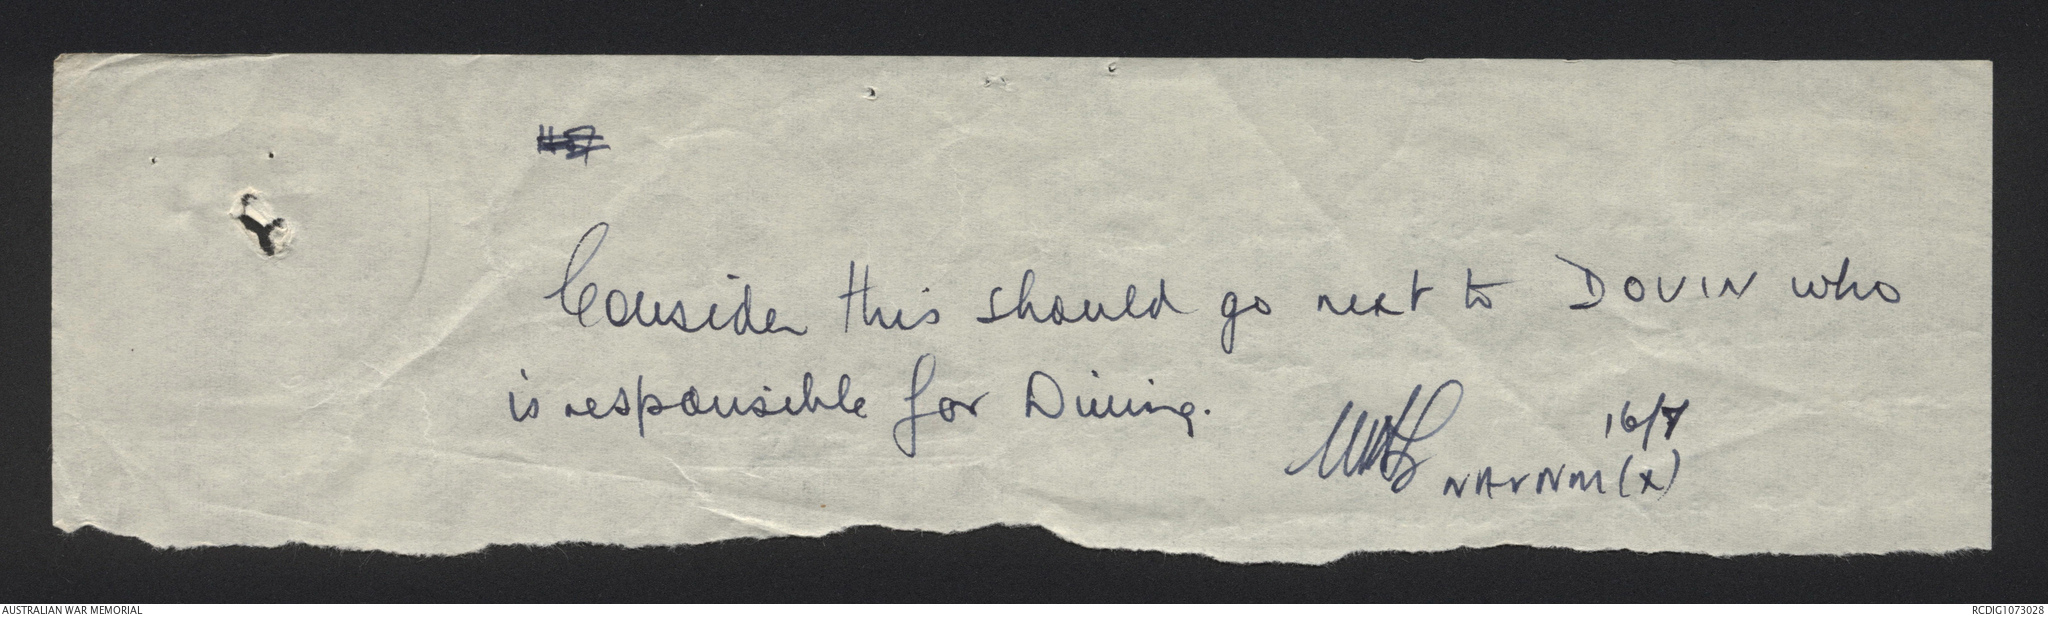 Consider this should go next to DOVIN who
is responsible for Diving.
16/7
NAVNM (X)
AUSTRALIAN WAR MEMORIAL
RCDIG1073028